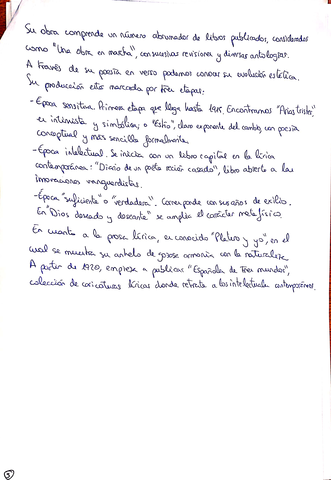 Su obra comprende un número abrumador de libros publicados, considerados
como "Una obra en marcha", con sucesivas revisiones y diversas antologías.
A través de su poesía en verso podemos conocer su evolución estética.
Su producción está marcada por tres etapas:
- Época sensitiva. Primera etapa que llega hasta 1915. Encontramos "Arias tristes",
es intimista y simbólica; o "Estío", claro exponente del cambio, con poesía
conceptual y más sencilla formalmente.
- Época intelectual. Se inicia con un libro capital en la lírica
contemporánea: "Diario de un poeta recién casado", libro abierto a las
innovaciones vanguardistas.
- Época "suficiente" o "verdadera". Corresponde con sus años de exilio.
En "Dios deseado y deseante" se amplía el carácter metafísico.
En cuanto a la prosa lírica, es conocido "Platero y yo", en el
cual se muestra su anhelo de gozosa armonía con la naturaleza
A partir de 1920, empieza a publicar "Española de Tres mundos",
colección de caricaturas líricas donde retrata a los intelectuales contemporáneos.